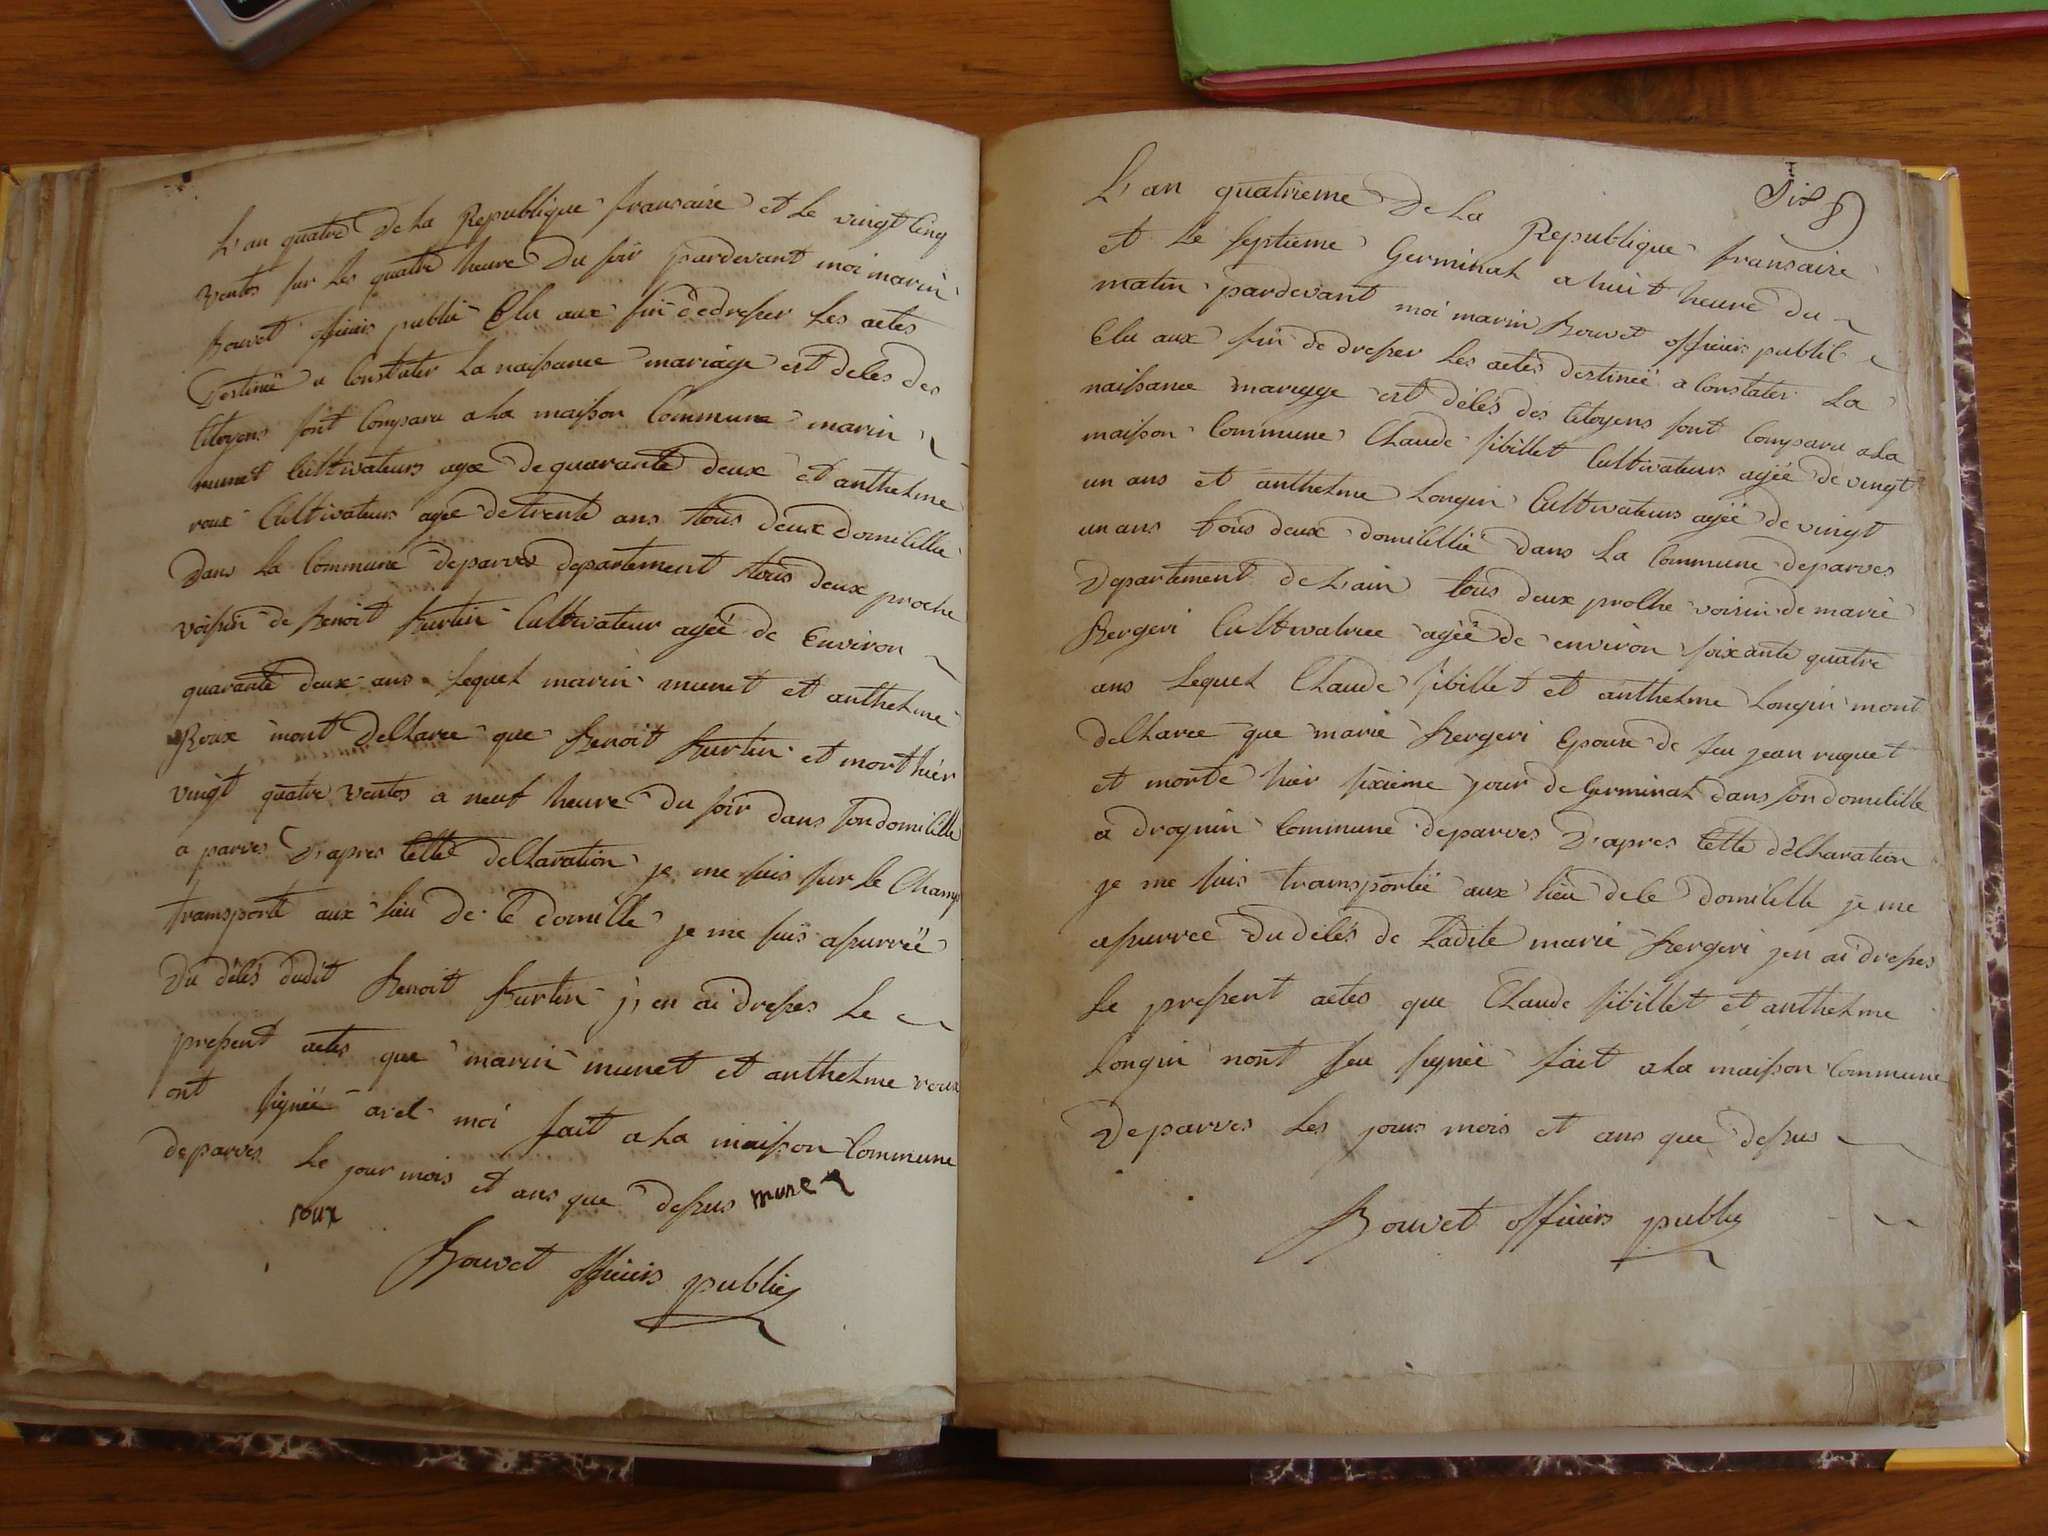 L'an quatre De La Republique fransaise et Le vingt Cinq
ventos sur Les quatre heure Du soir pardevant moi marin
Bouvet officier public Elu aux fin de dresser Les actes
Destineé a Constater La naissance mariage est deces des
Citoyens sont Comparu a La maison Commune marin
munet Cultivateurs agee de quarante deux et anthelme
roux Cultivateurs agee de trente ans tous deux domicillié
Dans La Commune deparves departement tous deux proche
voisin de Benoit Burtin Cultivateur ageé de Environ
quarante deux ans Lequel marin munet et anthelme
Roux mont declaree que Benoit Burtin et mort hier
vingt quatre ventos a neuf heure Du soir dans son domicille
a parves D'apres Cette declaration je me suis sur Le Champ
transporté aux Lieu De Ce domille je me suis assurreé
Du décés dudit Benoit Burtin j'en ai dresses Le
present actes que marin munet et anthelme roux
ont signeé avec moi fait a La maison Commune
deparves Le jour mois et ans que dessus munet
roux
Bouvet officiers public
Six
8
L'an quatrieme De La Republique fransaise
et Le septieme Germinal a huit heure du
matin pardevant moi marin Bouvet officier public
Elu aux fin de dresser Les actes destineé a Constater La
naissance mariage est décés des Citoyens sont Comparu a La
maison Commune Claude sibillet Cultivateurs ageé de vingt
un ans et anthelme Longin Cultivateurs ageé de vingt
un ans tous deux domicillié dans La Commune deparves
Departement de L'ain tous deux proche voisin de marie
Bergeri Cultivatrice ageé de environ soixante quatre
ans Lequel Claude sibillet et anthelme Longin mont
declaree que marie Bergeri Epouse de feu jean ruguet
et morte hier sixieme jour de Germinal dans son domicille
a Drognin Commune deparves D'apres Cette déclaration
je me suis transporteé aux Lieu de Ce domicille je me
assurree Du décés de Ladite marie Bergeri jen ai dresses
Le present actes que Claude sibillet et anthelme
Longin nont seu signeé fait a La maison Commune
Deparves Les jours mois et ans que dessus
Bouvet officiers public